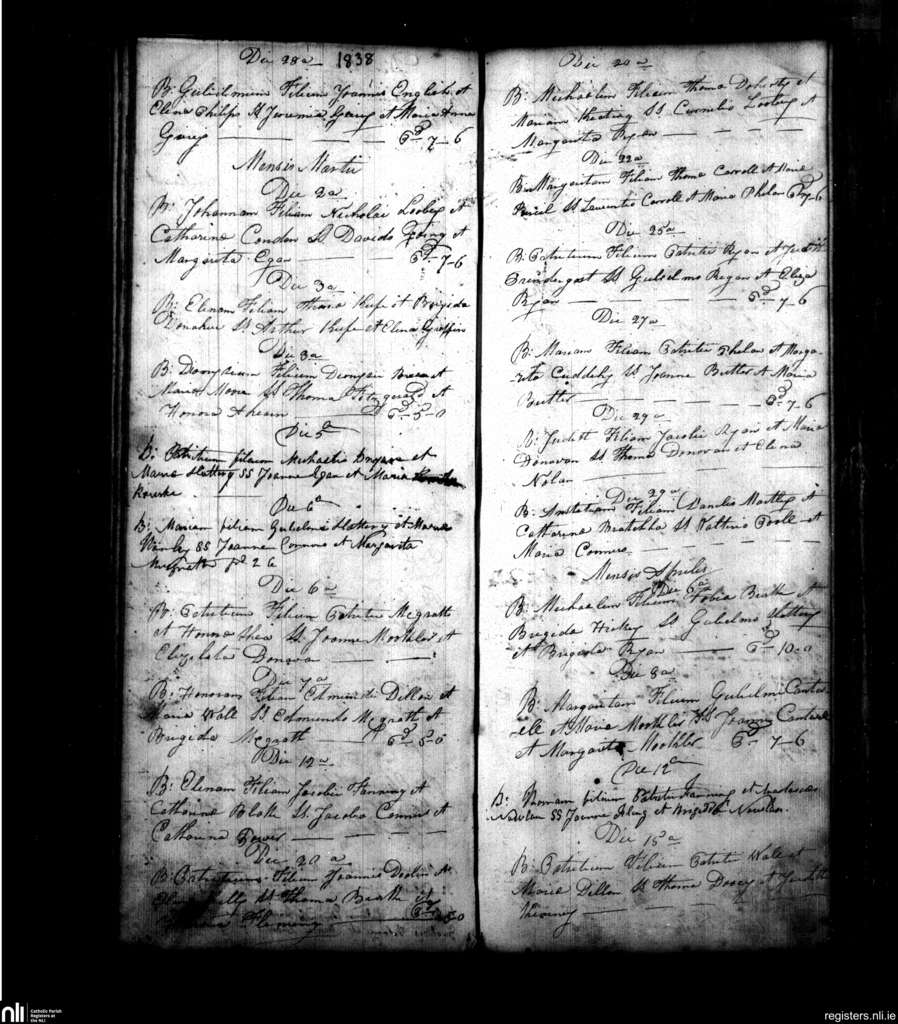 Die 28a 1838
B: Gulielmum Filium Joannis English et
Elena Philips SS Jeremia Gairy et Maria Anna
Gairy — Pd 7-6
Mensis Martii
Die 2a
B: Johannam Filiam Nicholai Looby et
Catharina Condon SS Davido Going et
Margarita Egan — Pd 7-6
Die 3a
B: Elenam Filiam Thoma Keefe et Brigida
Donahue SS Arthur Keefe et Elena Griffin
Die 3a
B: Dionysium Filium Dionysii et
Maria SS Thoma Fitzgerald et
Honora Ahearn — Pd 5-0
Die 5a
B: Patritium filium Michaelis Dwyer et
Maria Slattery SS Joanne Egan et Maria
Rourke
Die 6a
B: Mariam filiam Gulielmi Slattery et Maria
SS Joanne Connors et Margarita
McGrath pd 2 6
Die 6a
B: Patritium Filium Patritii Mcgrath
et Honora Shea SS Joanne Mockler et
Elizabeta Donovan
Die 7a
B: Honoram Filiam Edmundi Dillon et
Maria Wall SS Edmundo Mcgrath et
Brigida Mcgrath — Pd 5-0
Die 12a
B: Elenam Filiam Jacobi Fenning et
Catharina Blake SS Jacobo Connors et
Catharina Power
Die 20a
B: Patritium Filium Joannis Devlin et
Kelly SS Thoma Beath et
Fleming
Die 20a
B: Michaelem Filium Thoma Doherty et
Mariam Keating SS Cornelio Looby et
Margarita Ryan
Die 22a
B: Margaritam Filiam Thoma Carroll et Maria
SS Laurentio Carroll et Maria Phelan Pd 7-6
Die 25a
B: Patritium Filium Patritii Ryan et Judith
Prendergast SS Gulielmo Regan et Eliza
Ryan — Pd 7-6
Die 27a
B: Mariam Filiam Patritii Phelan et Marga-
rita Cuddihy SS Joanne Butler et Maria
Butler — Pd 7-6
Die 29a
B: Judith Filiam Jacobi Ryan et Maria
Donovan SS Thoma Donovan et Elena
Nolan
Die 29a
B: Anastatiam Filiam Danielis Mortley et
Catharina SS Patritio Poole et
Maria Connors
Mensis Aprilis
Die 6a
B: Michaelem Filium Tobia Beath et
Brigida Hickey SS Gulielmo Slattery
et Brigida Ryan — Pd 10-0
Die 8a
B: Margaritam Filiam Gulielmi Cantw-
ell et Maria Mockler SS Joanne Cantwell
et Margarita Mockler Pd 7-6
Die 12a
B: filium Patritii Fanning et Anastasia
Nowlan SS Joanne et Brigida Nowlan.
Die 15a
B: Patritium Filium Patritii Wall et
Maria Dillon SS Thoma Darcy et Judith
nli
Catholic Parish
Registers at
the NLI
registers.nli.ie